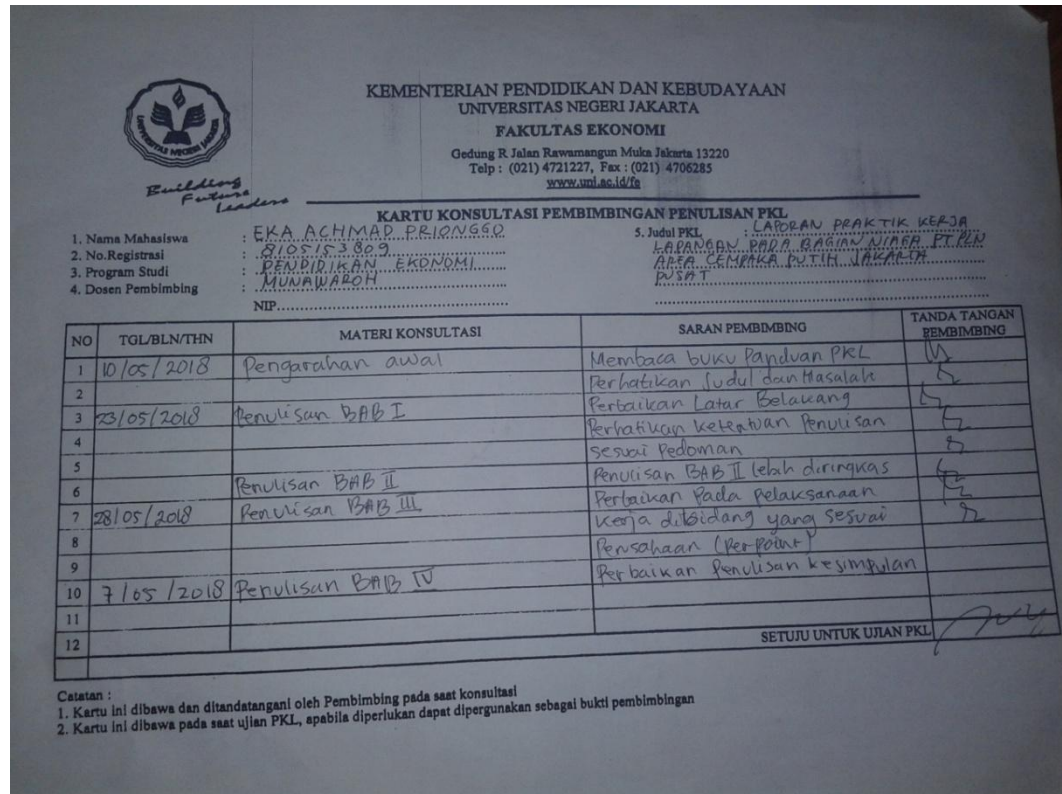 UNIVERSITAS NEGERI JAKARTA
Building
Future
Leaders
KEMENTERIAN PENDIDIKAN DAN KEBUDAYAAN
UNIVERSITAS NEGERI JAKARTA
FAKULTAS EKONOMI
Gedung R Jalan Rawamangun Muka Jakarta 13220
Telp : (021) 4721227, Fax : (021) 4706285
www.unj.ac.id/fe
KARTU KONSULTASI PEMBIMBINGAN PENULISAN PKL
1. Nama Mahasiswa : EKA ACHMAD PRIONGGO
2. No.Registrasi : 8105153809
3. Program Studi : PENDIDIKAN EKONOMI
4. Dosen Pembimbing : MUNAWAROH
NIP
5. Judul PKL : LAPORAN PRAKTIK KERJA
LAPANGAN PADA BAGIAN NIAGA PT.PLN
AREA CEMPAKA PUTIH JAKARTA
PUSAT
NO TGL/BLN/THN MATERI KONSULTASI SARAN PEMBIMBING TANDA TANGAN PEMBIMBING
1 10/05/2018 Pengarahan awal Membaca buku Panduan PKL
2 Perhatikan Judul dan Masalah
3 23/05/2018 Penulisan BAB I Perbaikan Latar Belakang
4 Perhatikan ketentuan Penulisan
5 sesuai Pedoman
6 Penulisan BAB II Penulisan BAB II lebih diringkas
7 28/05/2018 Penulisan BAB III Perbaikan Pada Pelaksanaan
8 kerja dibidang yang sesuai
9 Perusahaan (Perpoint)
10 7/05/2018 Penulisan BAB IV Perbaikan Penulisan kesimpulan
11
12
SETUJU UNTUK UJIAN PKL
Catatan :
1. Kartu ini dibawa dan ditandatangani oleh Pembimbing pada saat konsultasi
2. Kartu ini dibawa pada saat ujian PKL, apabila diperlukan dapat dipergunakan sebagai bukti pembimbingan